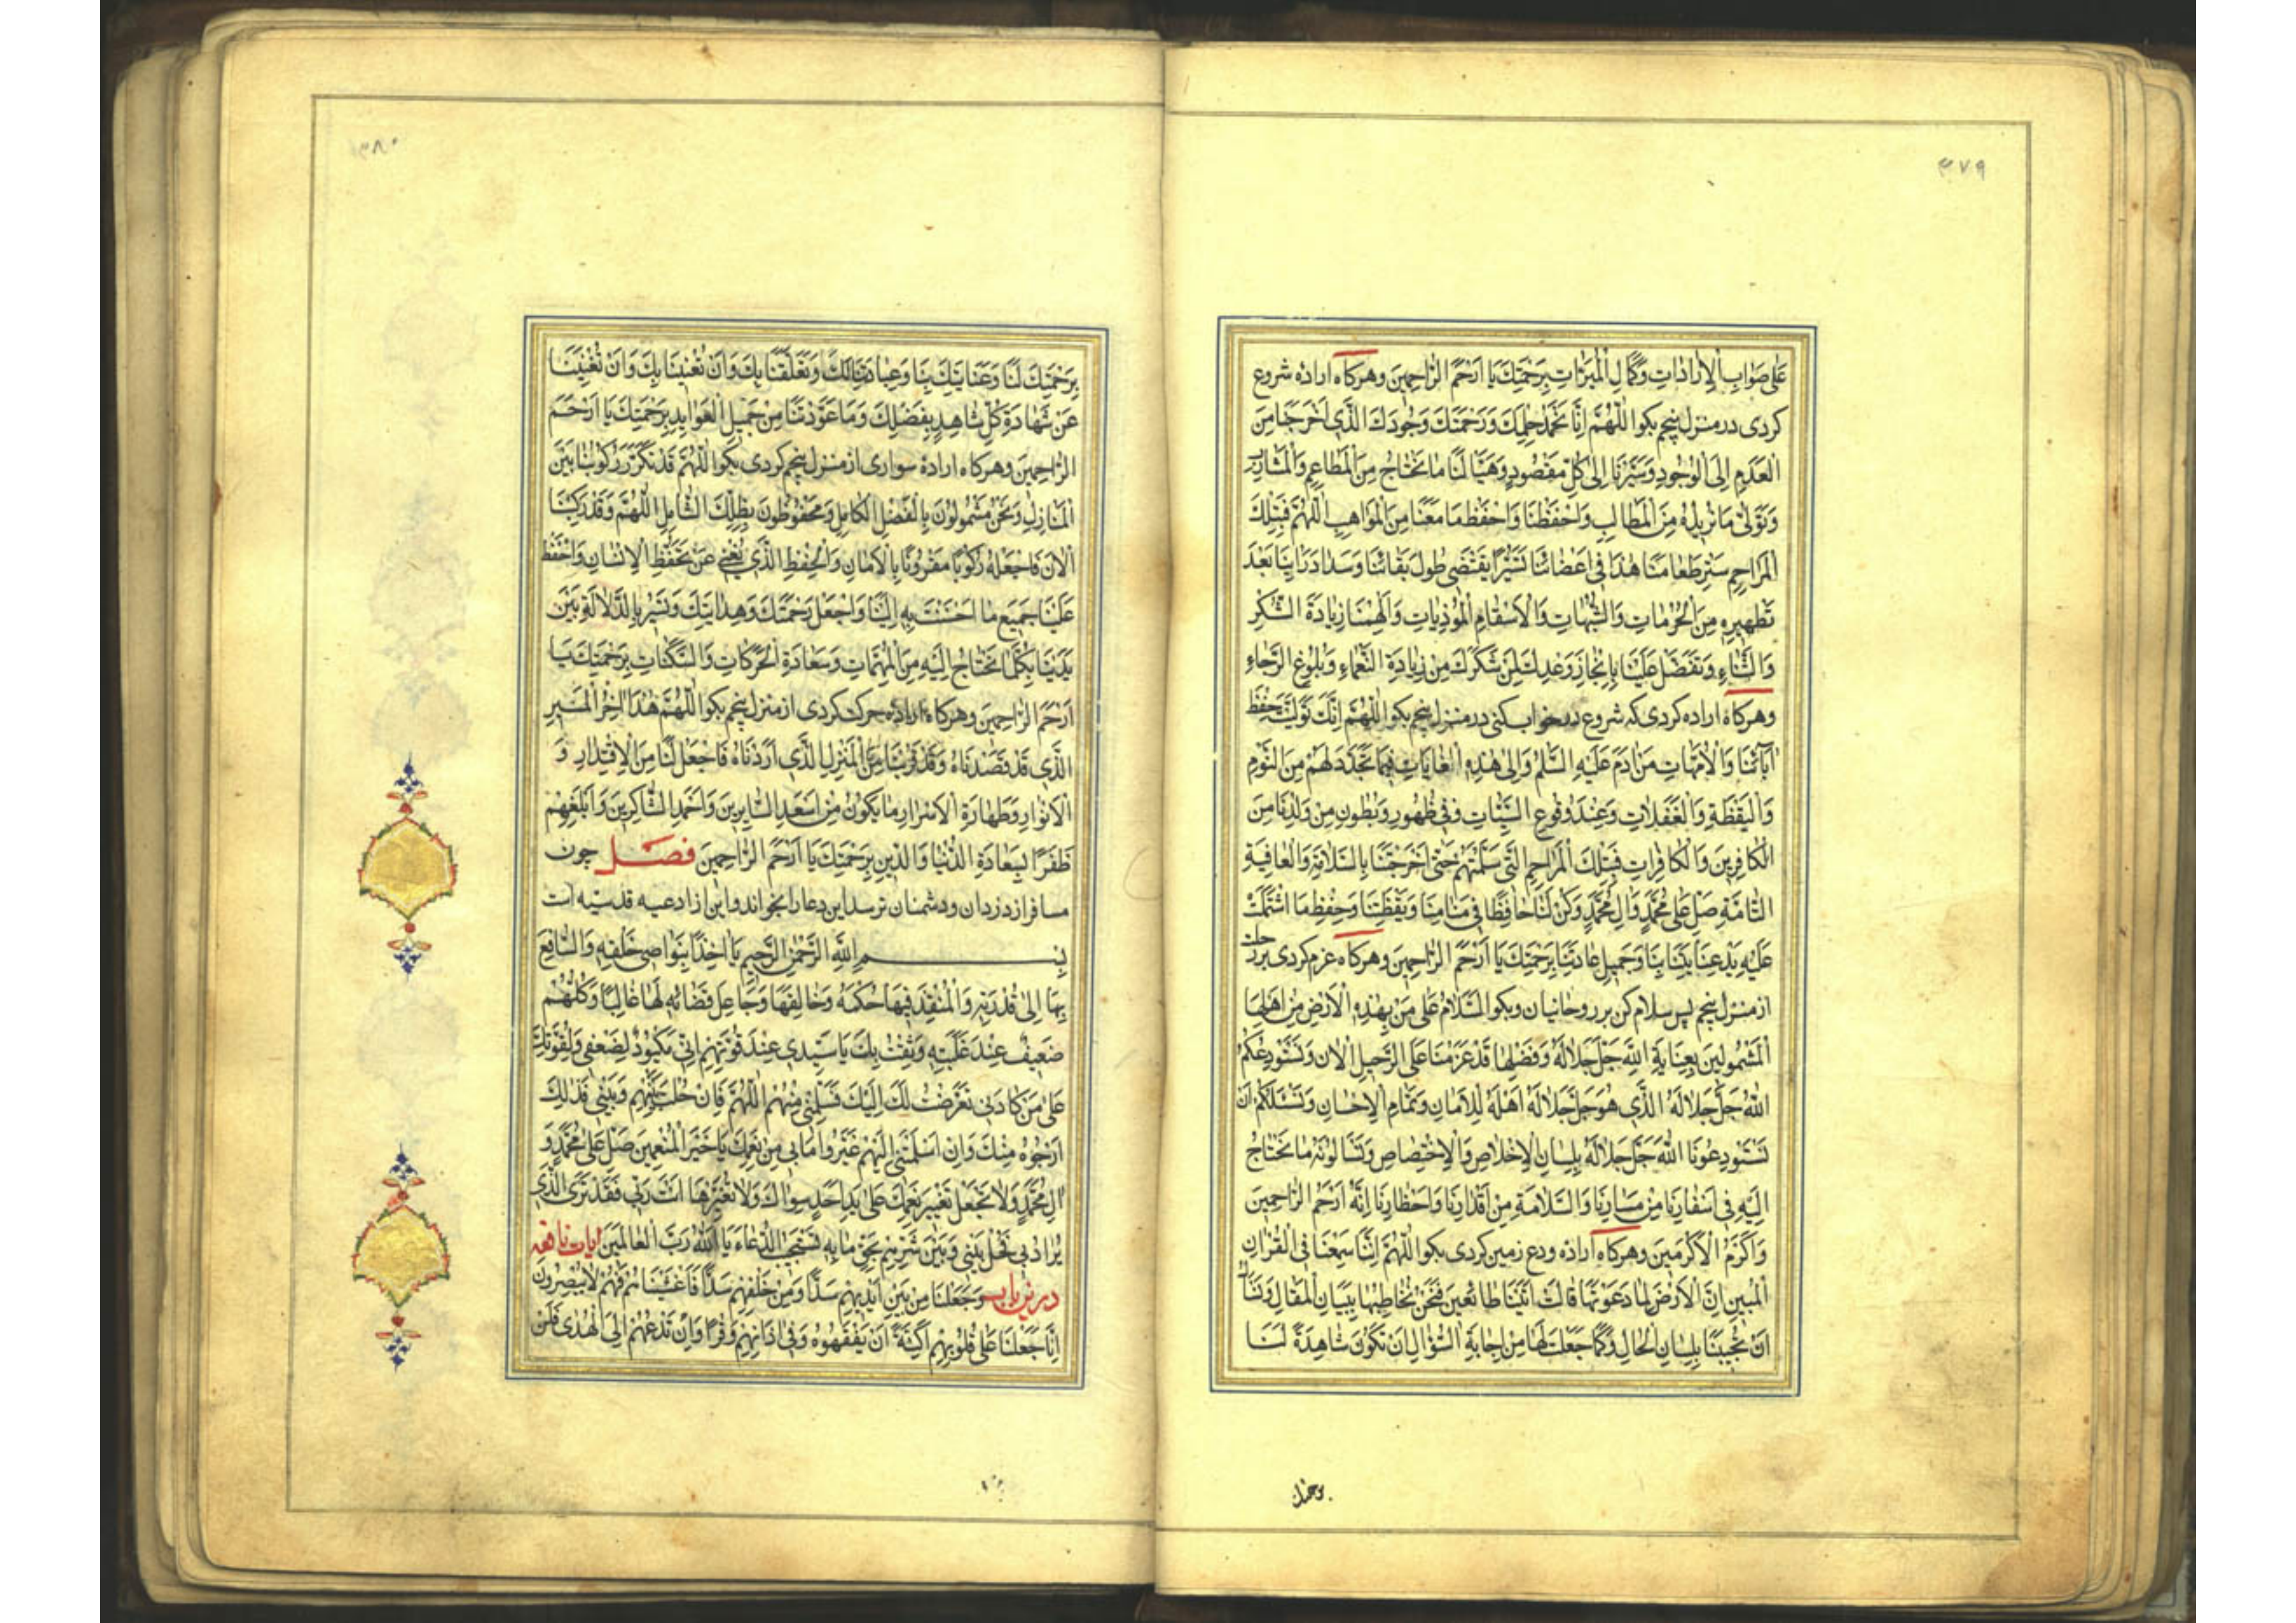 ۳۷۹
عَلیٰ صَوابِ الْاِراداتِ وَكَمالِ الْمَبَرّاتِ بِرَحْمَتِكَ يا اَرْحَمَ الرّاحِمينَ وهركاه اراده شروع
كردى در منزل پنجم بكو اَللّٰهُمَّ اِنّا نَحْمَدُ حِلْمَكَ وَرَحْمَتَكَ وَجُودَكَ الَّذى اَخْرَجَنا مِنَ
الْعَدَمِ اِلَى الْوُجُودِ وَسَيَّرَنا اِلىٰ كُلِّ مَقْصُودٍ وَهَيَّأَ لَنا ما نَحْتاجُ مِنَ الْمَطاعِمِ وَالْمَشارِبِ
وَتَوَلّىٰ ما نُريدُهُ مِنَ الْمَطالِبِ وَاحْفَظْنا وَاحْفَظْ ما مَعَنا مِنَ الْمَواهِبِ اَللّٰهُمَّ فَبِتِلْكَ
الْمَراحِمِ سَيِّرْ طَعامَنا هٰذا فى اَعْضائِنا تَسْيِيرًا يَقْتَضى طُولَ بَقائِنا وَسَدادَ رَأْيِنا بَعْدَ
تَطْهيرِهِ مِنَ الْحُرُماتِ وَالشُّبُهاتِ وَالْاَسْقامِ الْمُؤْذِياتِ وَاَلْهِمْنا زِيادَةَ الشُّكْرِ
وَالثَّناءِ وَتَفَضَّلْ عَلَيْنا بِاِنْجازِ وَعْدِكَ لِمَنْ شَكَرَكَ مِنْ زِيادَةِ النَّعْماءِ وَبُلُوغِ الرَّجاءِ
وهركاه اراده كردى كه شروع در خواب كنى در منزل پنجم بكو اَللّٰهُمَّ اِنَّكَ تَوَلَّيْتَ حِفْظَ
آبائِنا وَالْاُمَّهاتِ مِنْ اٰدَمَ عَلَيْهِ السَّلٰمُ وَاِلىٰ هٰذِهِ الْغاياتِ فيما تَجَدَّدَ لَهُمْ مِنَ النَّوْمِ
وَالْيَقْظَةِ وَالْغَفَلاتِ وَعِنْدَ وُقُوعِ السَّيِّئاتِ وَفى ظُهُورِ وَبُطُونِ مَنْ وَلَدَنا مِنَ
الْكافِرينَ وَالْكافِراتِ فَبِتِلْكَ الْمَراحِمِ الَّتى سَلَّمْتَهُمْ حَتّىٰ اَخْرَجْتَنا بِالسَّلامَةِ وَالْعافِيَةِ
التّامَّةِ صَلِّ عَلىٰ مُحَمَّدٍ وَاٰلِ مُحَمَّدٍ وَكُنْ لَنا حافِظًا فى مَنامِنا وَيَقْظَتِنا وَحِفْظِ مَا اشْتَمَلَتْ
عَلَيْهِ يَدُ عِنايَتِنا بِنا وَجَميلِ عادَتِنا بِرَحْمَتِكَ يا اَرْحَمَ الرّاحِمينَ وهركاه عزم كردى بر رحلت
از منزل پنجم پس سلام كن بر روحانيان وبكو اَلسَّلامُ عَلىٰ مَنْ بِهٰذِهِ الْاَرْضِ مِنْ اَهْلِهَا
الْمَشْمُولينَ بِعِنايَةِ اللّٰهِ جَلَّ جَلالُهُ وَفَضْلِها قَدْ عَزَمْنا عَلَى الرَّحيلِ الْاٰنَ وَنَسْتَوْدِعُكُمُ
اللّٰهَ جَلَّ جَلالُهُ الَّذى هُوَ جَلَّ جَلالُهُ اَهْلُهُ لِلْاَمانِ وَتَمامِ الْاِحْسانِ وَنَسْئَلُكُمْ اَنْ
تَسْتَوْدِعُونا اللّٰهَ جَلَّ جَلالُهُ بِلِسانِ الْاِخْلاصِ وَالْاِخْتِصاصِ وَتَسْأَلُونَهُ ما نَحْتاجُ
اِلَيْهِ فى اَسْفارِنا مِنْ مَسارِنا وَالسَّلامَةِ مِنْ اَقْذارِنا وَاَخْطارِنا اِنَّهُ اَرْحَمُ الرّاحِمينَ
وَاَكْرَمُ الْاَكْرَمينَ وهركاه اراده ودع زمين كردى بكو اَللّٰهُمَّ اِنَّنا سَمِعْنا فِى الْقُرْاٰنِ
الْمُبينِ اِنَّ الْاَرْضَ لَمّا دَعَوْتَها قالَتْ اَتَيْنا طائِعينَ فَنَحْنُ نُخاطِبُها بِبَيانِ الْمَقالِ وَنَسْأَلُ
اَنْ تُجيبَنا بِلِسانِ الْحالِ وَكَما جَعَلْتَ لَها مِنْ اِجابَةِ السُّؤالِ اَنْ تَكُونَ شاهِدَةً لَنا
برحمتك
۳۸۰
بِرَحْمَتِكَ لَنا وَعِنايَتِكَ بِنا وَعِبادَتِنا لَكَ وَتَعَلُّقِنا بِكَ وَاَنْ تُغْنِيَنا بِكَ وَاَنْ تُغْنِيَنا
عَنْ شَهادَةِ كُلِّ شاهِدٍ بِفَضْلِكَ وَما عَوَّدْتَنا مِنْ جَميلِ الْعَوايِدِ بِرَحْمَتِكَ يا اَرْحَمَ
الرّاحِمينَ وهركاه اراده سوارى از منزل پنجم كردى بكو اَللّٰهُمَّ قَدْ تَكَرَّرَ رُكُوبُنا بَيْنَ
الْمَنازِلِ وَنَحْنُ مَشْمُولُونَ بِالْفَضْلِ الْكامِلِ وَمَحْفُوظُونَ بِظِلِّكَ الشّامِلِ اَللّٰهُمَّ وَقَدْ رَكِبْنا
الْاٰنَ فَاجْعَلْهُ رُكُوبًا مَقْرُونًا بِالْاَمانِ وَالْحِفْظِ الَّذى يُغْنى عَنْ تَحَفُّظِ الْاِنْسانِ وَاحْفَظْ
عَلَيْنا جَميعَ ما اَحْسَنْتَ بِهِ اِلَيْنا وَاجْعَلْ رَحْمَتَكَ وَهِدايَتَكَ وَتَسِيرُ بِالدَّلالَةِ بَيْنَ
يَدَيْنا بِكُلِّما نَحْتاجُ اِلَيْهِ مِنَ الْمُهِمّاتِ وَسَعادَةِ الْحَرَكاتِ وَالسَّكَناتِ بِرَحْمَتِكَ يا
اَرْحَمَ الرّاحِمينَ وهركاه اراده حركت كردى از منزل پنجم بكو اَللّٰهُمَّ هٰذا اٰخِرُ الْمَسيرِ
الَّذى قَدْ قَصَدْناهُ وَقَدْ قَرُبْنا مِنَ الْمَنْزِلِ الَّذى اَرَدْناهُ فَاجْعَلْ لَنا مِنَ الْاِقْتِدارِ وَ
الْاَنْوارِ وَطَهارَةِ الْاَسْرارِ ما يَكُونُ مِنْ اَسْعَدِ السّايِرينَ وَاَحْمَدِ الشّاكِرينَ وَاَبْلَغِهِمْ
ظَفَرًا لِسَعادَةِ الدُّنْيا وَالدّينِ بِرَحْمَتِكَ يا اَرْحَمَ الرّاحِمينَ فصل چون
مسافر از دزدان ودشمنان ترسد اين دعا را بخواند واين از ادعيه قدسيه است
بِسْمِ اللّٰهِ الرَّحْمٰنِ الرَّحيمِ يا اٰخِذًا بِنَواصى خَلْقِهِ وَالسّافِعَ
بِها اِلىٰ قُدْرَتِهِ وَالْمُنْفِذَ فيها حُكْمَهُ وَخالِقَها وَجاعِلَ قَضائِهِ لَها غالِبًا وَكُلُّهُمْ
ضَعيفٌ عِنْدَ غَلَبَتِهِ وَثِقْتُ بِكَ يا سَيِّدى عِنْدَ قُوَّتِهِمْ اِنّى مَكْيُودٌ لِضَعْفى وَلِقُوَّتِكَ
عَلىٰ مَنْ كادَنى تَعَرَّضْتُ لَكَ اِلَيْكَ فَسَلِّمْنى مِنْهُمْ اَللّٰهُمَّ فَاِنْ حُلْتَ بَيْنَهُمْ وَبَيْنى فَذٰلِكَ
اَرْجُوهُ مِنْكَ وَاِنْ اَسْلَمْتَنى اِلَيْهِمْ غَيَّرُوا ما بى مِنْ نِعَمِكَ يا خَيْرَ الْمُنْعِمينَ صَلِّ عَلىٰ مُحَمَّدٍ وَ
اٰلِ مُحَمَّدٍ وَلا تَجْعَلْ تَغْييرَ نِعَمِكَ عَلىٰ يَدِ اَحَدٍ سِواكَ وَلا تُغَيِّرْها اَنْتَ رَبّى فَقَدْ تَرَى الَّذى
يُرادُ بى فَحُلْ بَيْنى وَبَيْنَ شَرِّهِمْ بِحَقِّ ما بِهِ تَسْتَجيبُ الدُّعاءَ يا اَللّٰهُ رَبَّ الْعالَمينَ ايات نافعه
درين باب وَجَعَلْنا مِنْ بَيْنِ اَيْديهِمْ سَدًّا وَمِنْ خَلْفِهِمْ سَدًّا فَاَغْشَيْناهُمْ فَهُمْ لا يُبْصِرُونَ
اِنّا جَعَلْنا عَلىٰ قُلُوبِهِمْ اَكِنَّةً اَنْ يَفْقَهُوهُ وَفى اٰذانِهِمْ وَقْرًا وَاِنْ تَدْعُهُمْ اِلَى الْهُدىٰ فَلَنْ